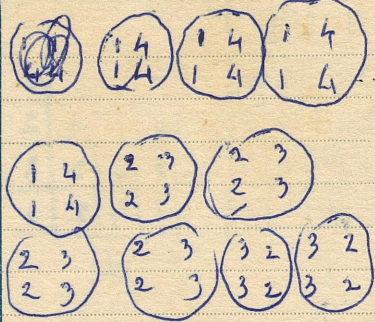 1 4 1 4 1 4
1 4 1 4 1 4
1 4 2 3 2 3
1 4 2 3 2 3
2 3 2 3 3 2 3 2
2 3 2 3 3 2 3 2